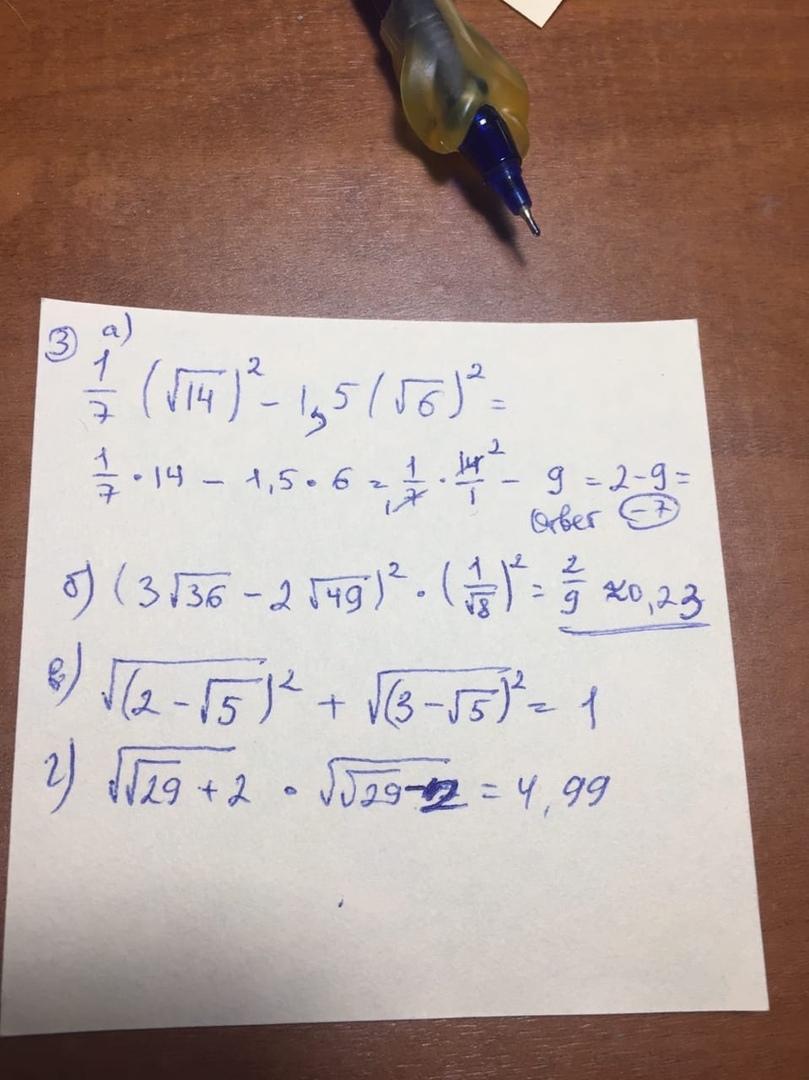 ③ а)
1/7 (√14)² - 1,5 (√6)² =
1/7 · 14 - 1,5 · 6 = 1/7 · 14²/1 - 9 = 2-9 =
Ответ -7
б) (3√36 - 2√49)² · (1/√8)² = 2/9 ≈0,23
в) √(2-√5)² + √(3-√5)² = 1
г) √√29+2 · √√29-2 = 4,99